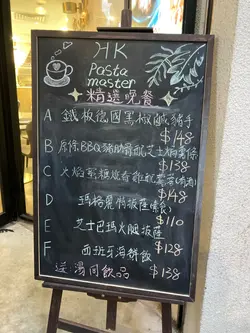 HK
Pasta
master
精選晚餐
A 鐵板德國黑椒鹹豬手
$148
B 原條BBQ豬肋骨配芝士焗薯條
$138
C 火焰蜜糖燒春雞配薯
$148
D 瑪格麗特披薩
$110
E 芝士巴瑪火腿披薩
$128
F 西班牙海鮮飯
送湯同飲品 $138